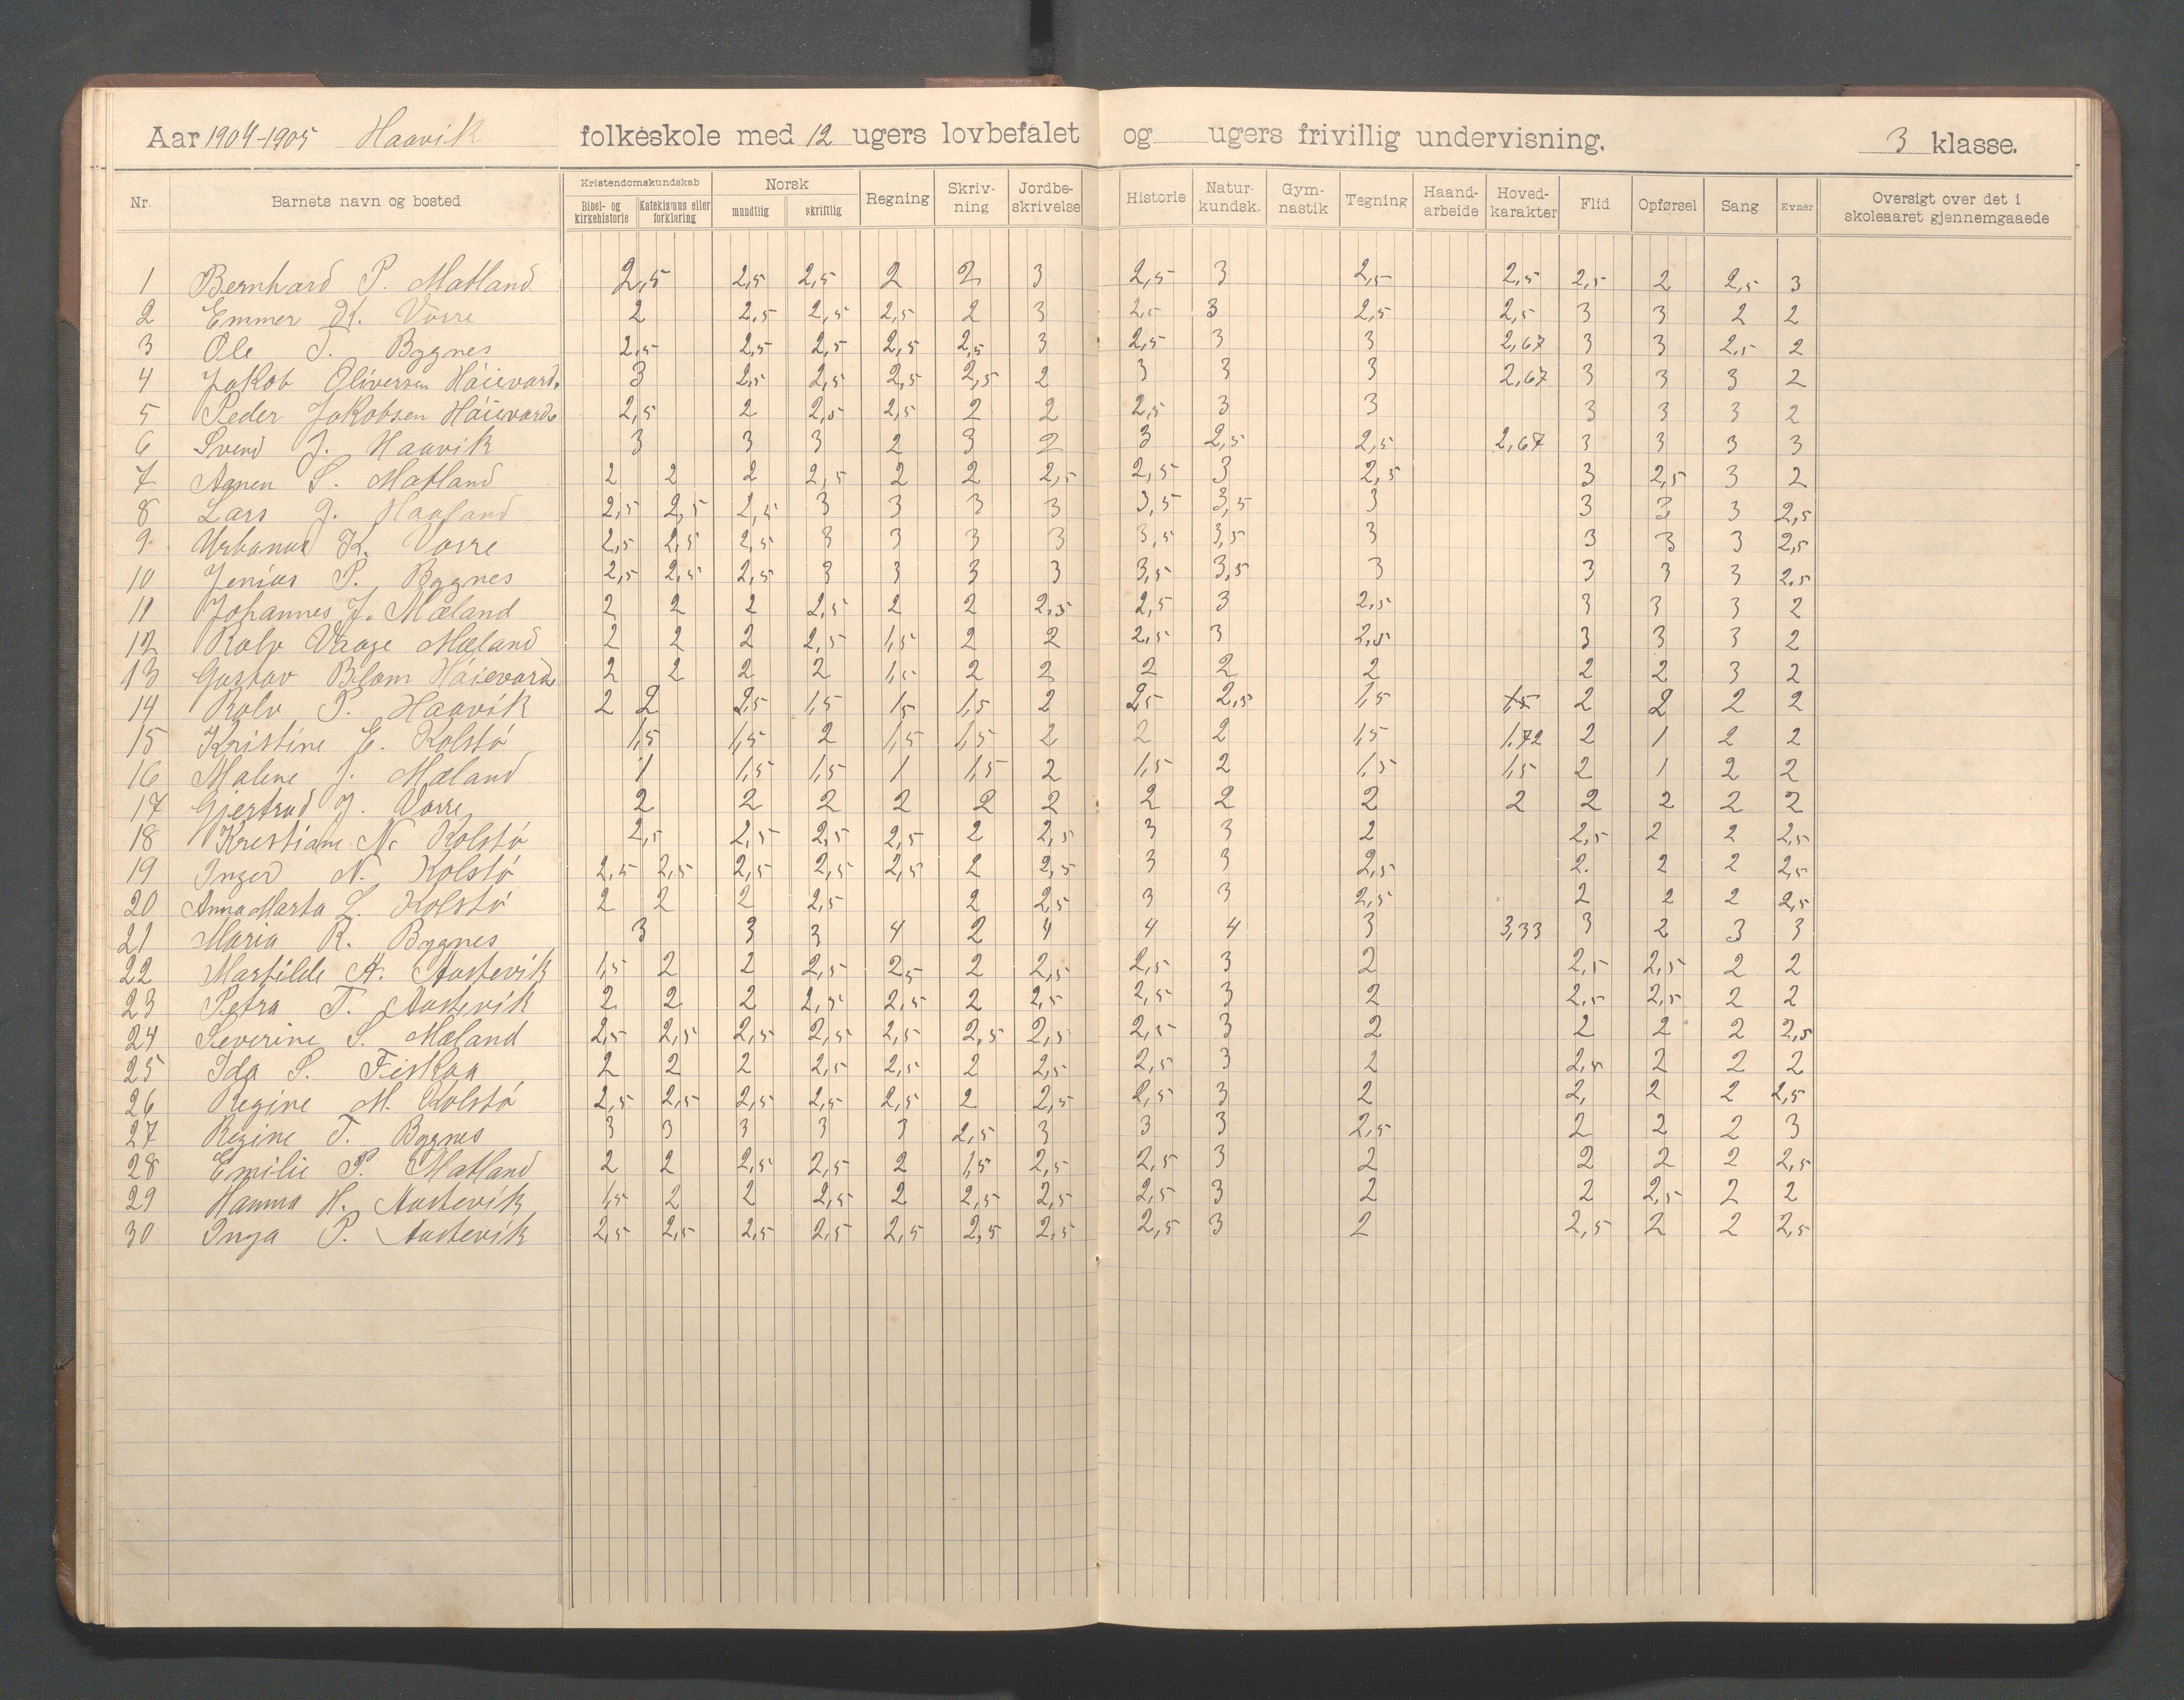 Aar 1904-1905 Haavik folkeskole med 12 ugers lovbefalet og ugers frivillig undervisning. 3 klasse.
Nr. Barnets navn og bosted Kristendomskundskab Bibel- og kirkehistorie Katekismus eller forklaring Norsk mundtlig skriftlig Regning Skriv-ning Jordbe-skrivelse Historie Natur-kundsk. Gym-nastik Tegning Haand-arbeide Hoved-karakter Flid Opførsel Sang Evner Oversigt over det i skoleaaret gjennemgaaede
1 Bernhard P. Matland 2,5 2,5 2,5 2 2 3 2,5 3 2,5 2,5 2,5 2 2,5 3
2 Emmer K. Vorre 2 2,5 2,5 2,5 2 3 2,5 3 2,5 2,5 3 3 2 2
3 Ole J. Bygnes 2,5 2,5 2,5 2,5 2,5 3 2,5 3 3 2,67 3 3 2,5 2
4 Jakob Oliversen Háievard. 3 2,5 2,5 2,5 2,5 2 3 3 3 2,67 3 3 3 2
5 Peder Jakobsen Háievard. 2,5 2 2,5 2,5 2 2 2,5 3 3 3 3 3 2
6 Svend J. Haavik 3 3 3 2 3 2 3 2,5 2,5 2,67 3 3 3 3
7 Agnen S. Matland 2 2 2 2,5 2 2 2,5 2,5 3 2,5 3 2,5 3 2
8 Lars J. Haaland 2,5 2,5 2,5 3 3 3 3 3,5 3,5 3 3 3 3 2,5
9 Urbanus K. Vorre 2,5 2,5 2,5 3 3 3 3 3,5 3,5 3 3 3 3 2,5
10 Jenias P. Bygnes 2,5 2,5 2,5 3 3 3 3 3,5 3,5 3 3 3 3 2,5
11 Johannes J. Mæland 2 2 2 2,5 2 2 2,5 2,5 3 2,5 3 3 3 2
12 Rolv Vaage Mæland 2 2 2 2,5 1,5 2 2 2,5 3 2,5 3 3 3 2
13 Gustav Blom Háievard. 2 2 2 2 1,5 2 2 2 2 2 2 2 3 2
14 Rolv P. Haavik 2 2 2,5 1,5 1,5 1,5 2 2,5 2,5 1,5 1,5 2 2 2 2
15 Kristine E. Kolstó 1,5 1,5 2 1,5 1,5 2 2 2 1,5 1.72 2 1 2 2
16 Malene J. Mæland 1 1,5 1,5 1 1,5 2 1,5 2 1,5 1,5 2 1 2 2
17 Gjertrud J. Vorre 2 2 2 2 2 2 2 2 2 2 2 2 2 2
18 Kristiane N. Kolstó 2,5 2,5 2,5 2,5 2 2,5 3 3 2 2,5 2 2 2,5
19 Inger N. Kolstó 2,5 2,5 2,5 2,5 2,5 2 2,5 3 3 2,5 2. 2 2 2,5
20 Anna Marta L. Kolstó 2 2 2 2,5 2 2,5 3 3 2,5 2 2 2 2,5
21 Maria R. Bygnes 3 3 3 4 2 4 4 4 3 3,33 3 2 3 3
22 Martilde A. Austevik 1,5 2 2 2,5 2,5 2 2,5 2,5 3 2 2,5 2,5 2 2
23 Petra T. Austevik 2 2 2 2,5 2,5 2 2,5 2,5 3 2 2,5 2,5 2 2
24 Severine S. Mæland 2,5 2,5 2,5 2,5 2,5 2,5 2,5 2,5 3 2 2 2 2 2,5
25 Ida S. Fiskaa 2 2 2 2,5 2,5 2 2,5 2,5 3 2 2,5 2 2 2
26 Regine M. Kolstó 2,5 2,5 2,5 2,5 2,5 2 2,5 2,5 3 2 2, 2 2 2,5
27 Regine T. Bygnes 3 3 3 3 3 2,5 3 3 3 2,5 2 2 2 3
28 Emilie P. Matland 2 2 2,5 2,5 2 1,5 2,5 2,5 3 2 2 2 2 2,5
29 Hanna H. Austevik 1,5 2 2 2,5 2 2,5 2,5 2,5 3 2 2 2,5 2 2
30 Inga P. Austevik 2,5 2,5 2,5 2,5 2,5 2,5 2,5 2,5 3 2 2,5 2 2 2,5